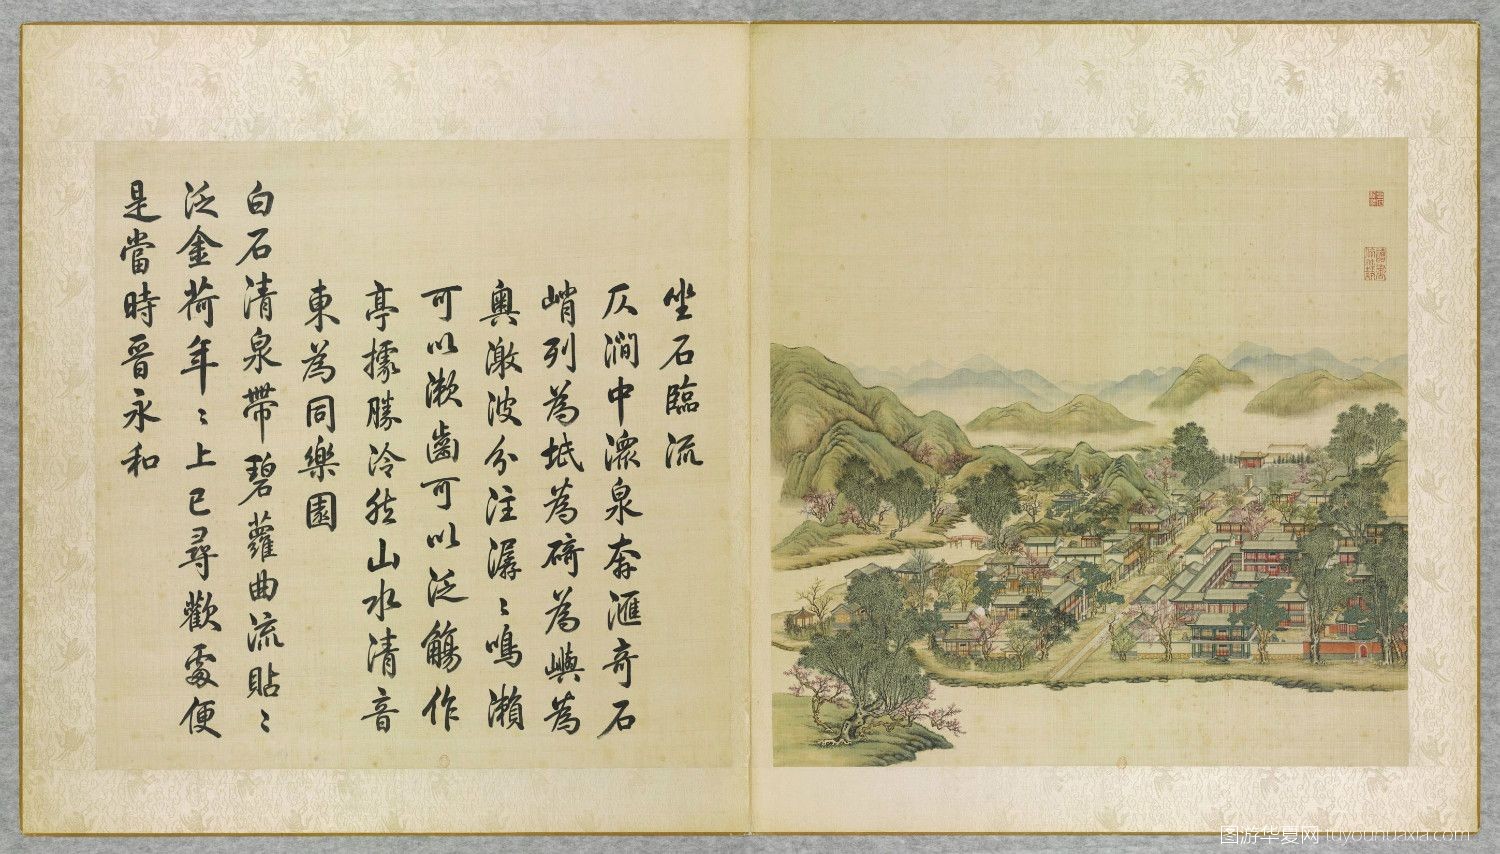 坐石臨流
仄澗中瀠泉奔滙奇石
峭列為坻為碕為嶼為
奧激波分注潺〻鳴瀨
可以漱齒可以泛觴作
亭據勝泠然山水清音
東為同樂園
白石清泉帶碧蘿曲流貼〻
泛金荷年〻上巳尋歡處便
是當時晉永和
图游华夏网 tuyouhuaxia.com